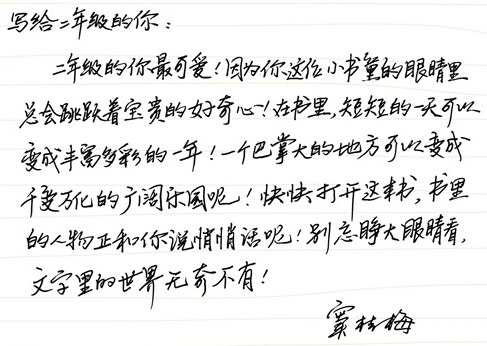 写给二年级的你：
二年级的你最可爱！因为你这位小书童的眼睛里
总会跳跃着宝贵的好奇心！在书里，短短的一天可以
变成丰富多彩的一年！一个巴掌大的地方可以变成
千变万化的广阔乐园呢！快快打开这本书，书里
的人物正和你说悄悄话呢！别忘睁大眼睛看，
文字里的世界无奇不有！
窦桂梅